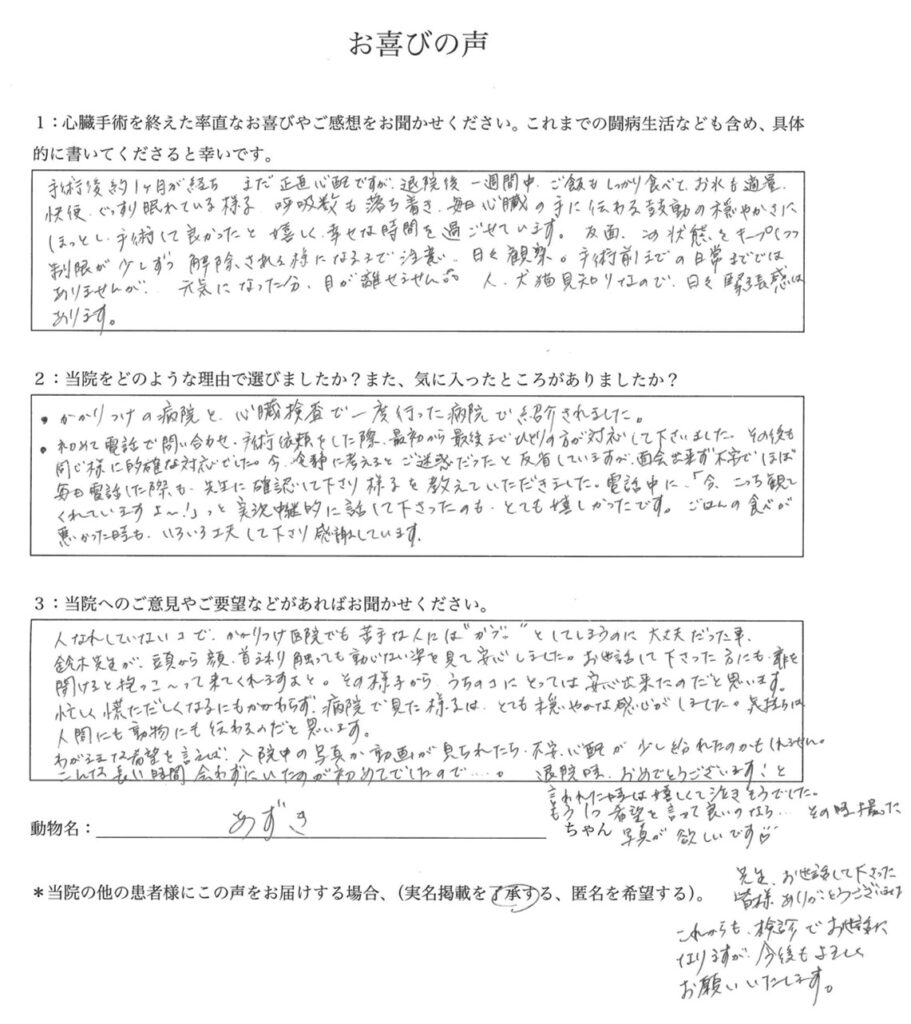 お喜びの声
1：心臓手術を終えた率直なお喜びやご感想をお聞かせください。これまでの闘病生活なども含め、具体
的に書いてくださると幸いです。
手術後約1ヶ月が経ち まだ正直心配ですが、退院後一週間中、ご飯もしっかり食べて、お水も適量、
快便、ぐっすり眠れている様子、呼吸数も落ち着き、毎日心臓の手に伝わる鼓動の穏やかさに
ほっとし、手術して良かったと嬉しく、幸せな時間を過ごせています。反面、この状態をキープしつつ
制限が少しずつ解除される様になるまで注意、日々観察。手術前までの日常まででは
ありませんが、元気になった分、目が離せません 人、犬猫見知りなので、日々緊張感は
あります。
2：当院をどのような理由で選びましたか？また、気に入ったところがありましたか？
・かかりつけの病院と、心臓検査で一度行った病院で紹介されました。
・初めて電話で問い合わせ、手術依頼をした際、最初から最後までひとりの方が対応して下さいました。その後も
同じ様に的確な対応でした。今、冷静に考えるとご迷惑だったと反省していますが、面会出来ず不安でほぼ
毎日電話した際も、先生に確認して下さり様子を教えていただきました。電話中に、「今、こっち観て
くれていますよ～！」っと実況中継的に話して下さったのも、とても嬉しかったです。ごはんの食べが
悪かった時も、いろいろ工夫して下さり感謝しています。
3：当院へのご意見やご要望などがあればお聞かせください。
人なれしていないコで、かかりつけ医院でも苦手な人には"ガブッ"としてしまうのに大丈夫だった事、
鈴木先生が、頭から顔、首まわり触っても動じない姿を見て安心しました。お世話して下さった方にも、扉を
開けると抱っこ～って来てくれますよと。その様子から、うちのコにとっては安心出来たのだと思います。
忙しく慌ただしくなるにもかかわらず、病院で見た様子は、とても穏やかな感じがしてた。気持ちは
人間にも動物にも伝わるのだと思います。
わがままな希望を言えば、入院中の写真か動画が見られたら、不安、心配が少し紛られたのかもしれません。
こんなに長い時間 会わずにいたのが初めてでしたので…。 退院時、おめでとうございます！と
言われた時は嬉しくて泣きそうでした。
もう1つ希望を言って良いのなら… その時撮った
写真が欲しいです
動物名： あずき ちゃん
＊当院の他の患者様にこの声をお届けする場合、（実名掲載を了承する、匿名を希望する）。
先生、お世話して下さった
皆様ありがとうございます
これからも、検診でお世話に
なりますが、今後もよろしく
お願いいたします。